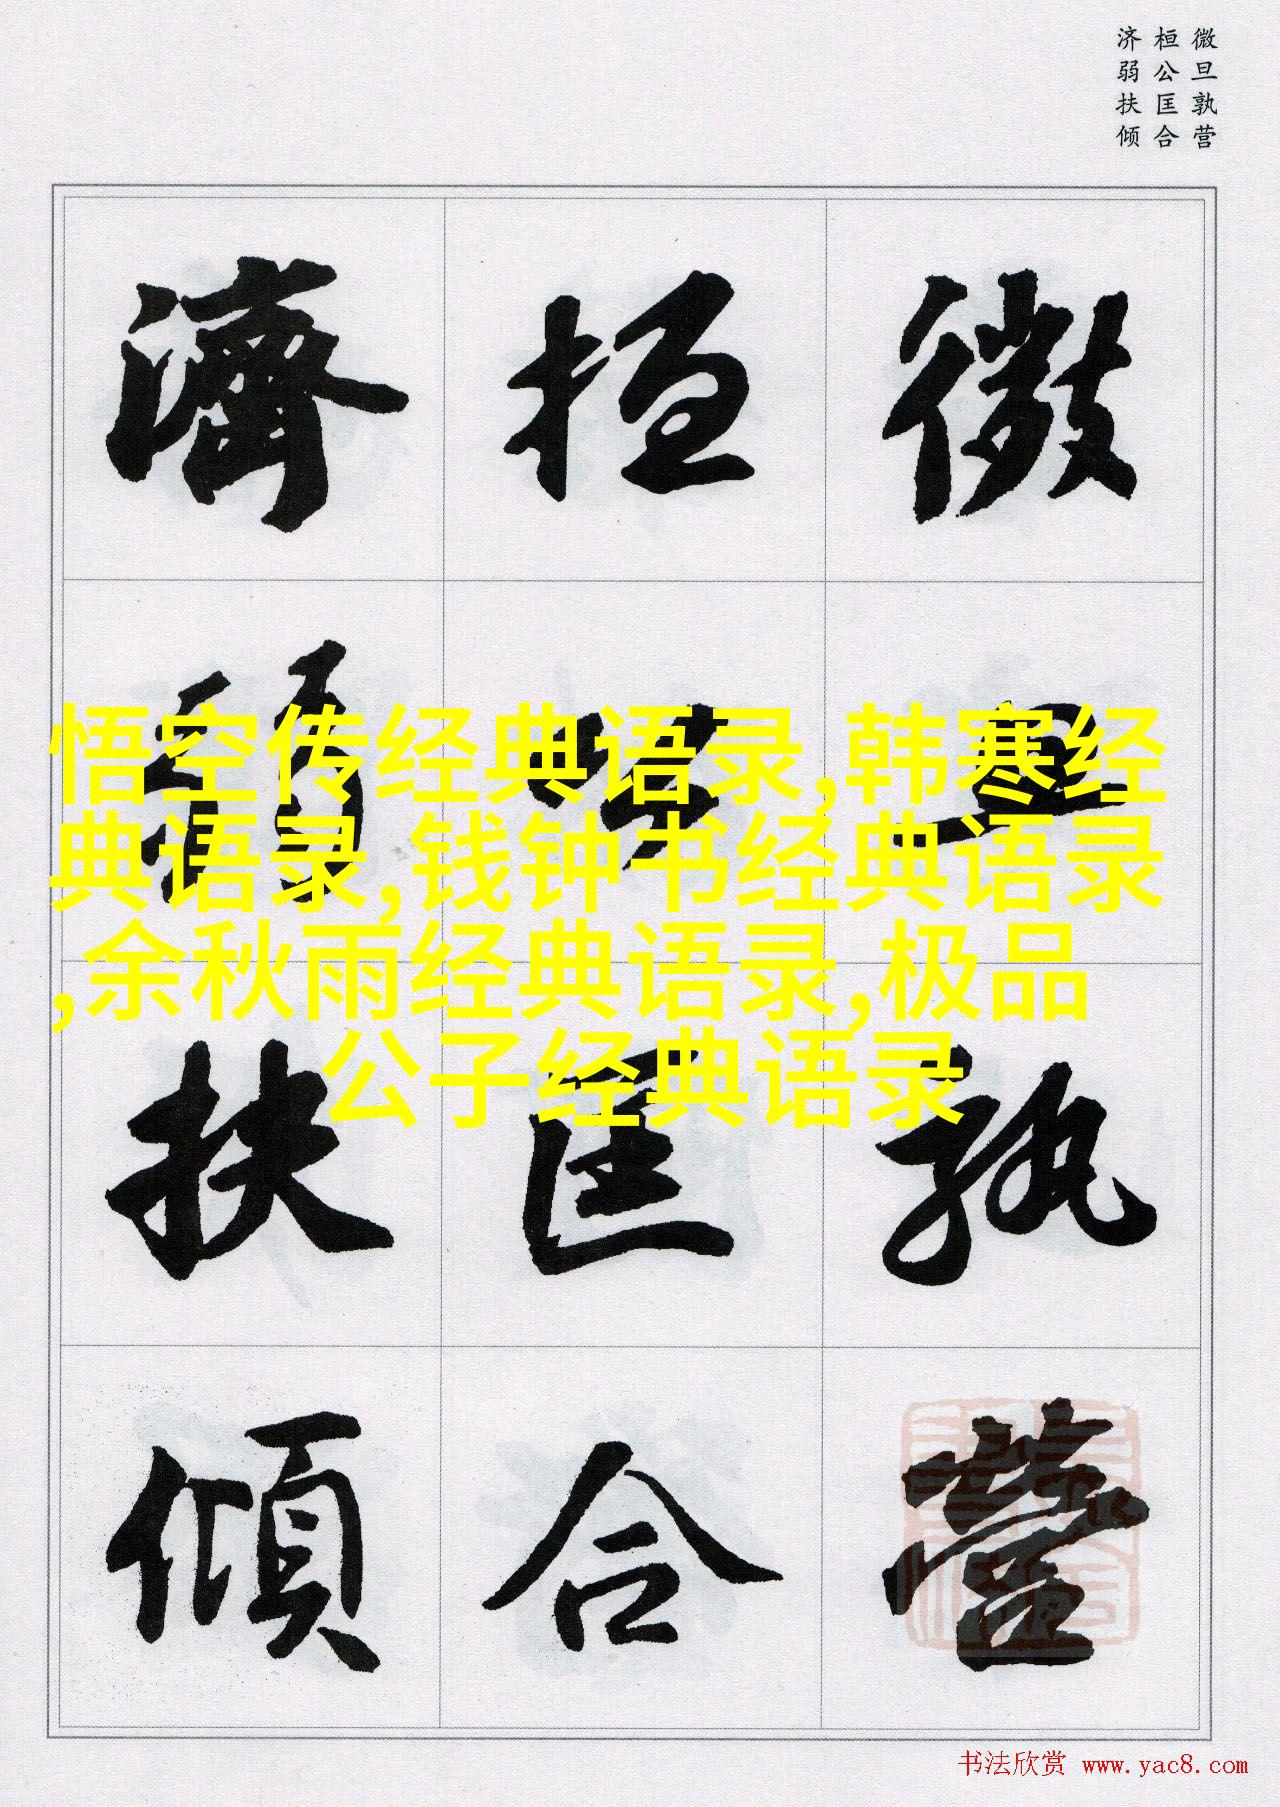 微旦孰营
桓公匡合
济弱扶倾
微
旦
孰
營
桓
公
匡
合
濟
弱
扶
傾
悟空传经典语录,韩寒经
典语录,钱钟书经典语录
,余秋雨经典语录,极品
公子经典语录
书法欣赏 www.yac8.com